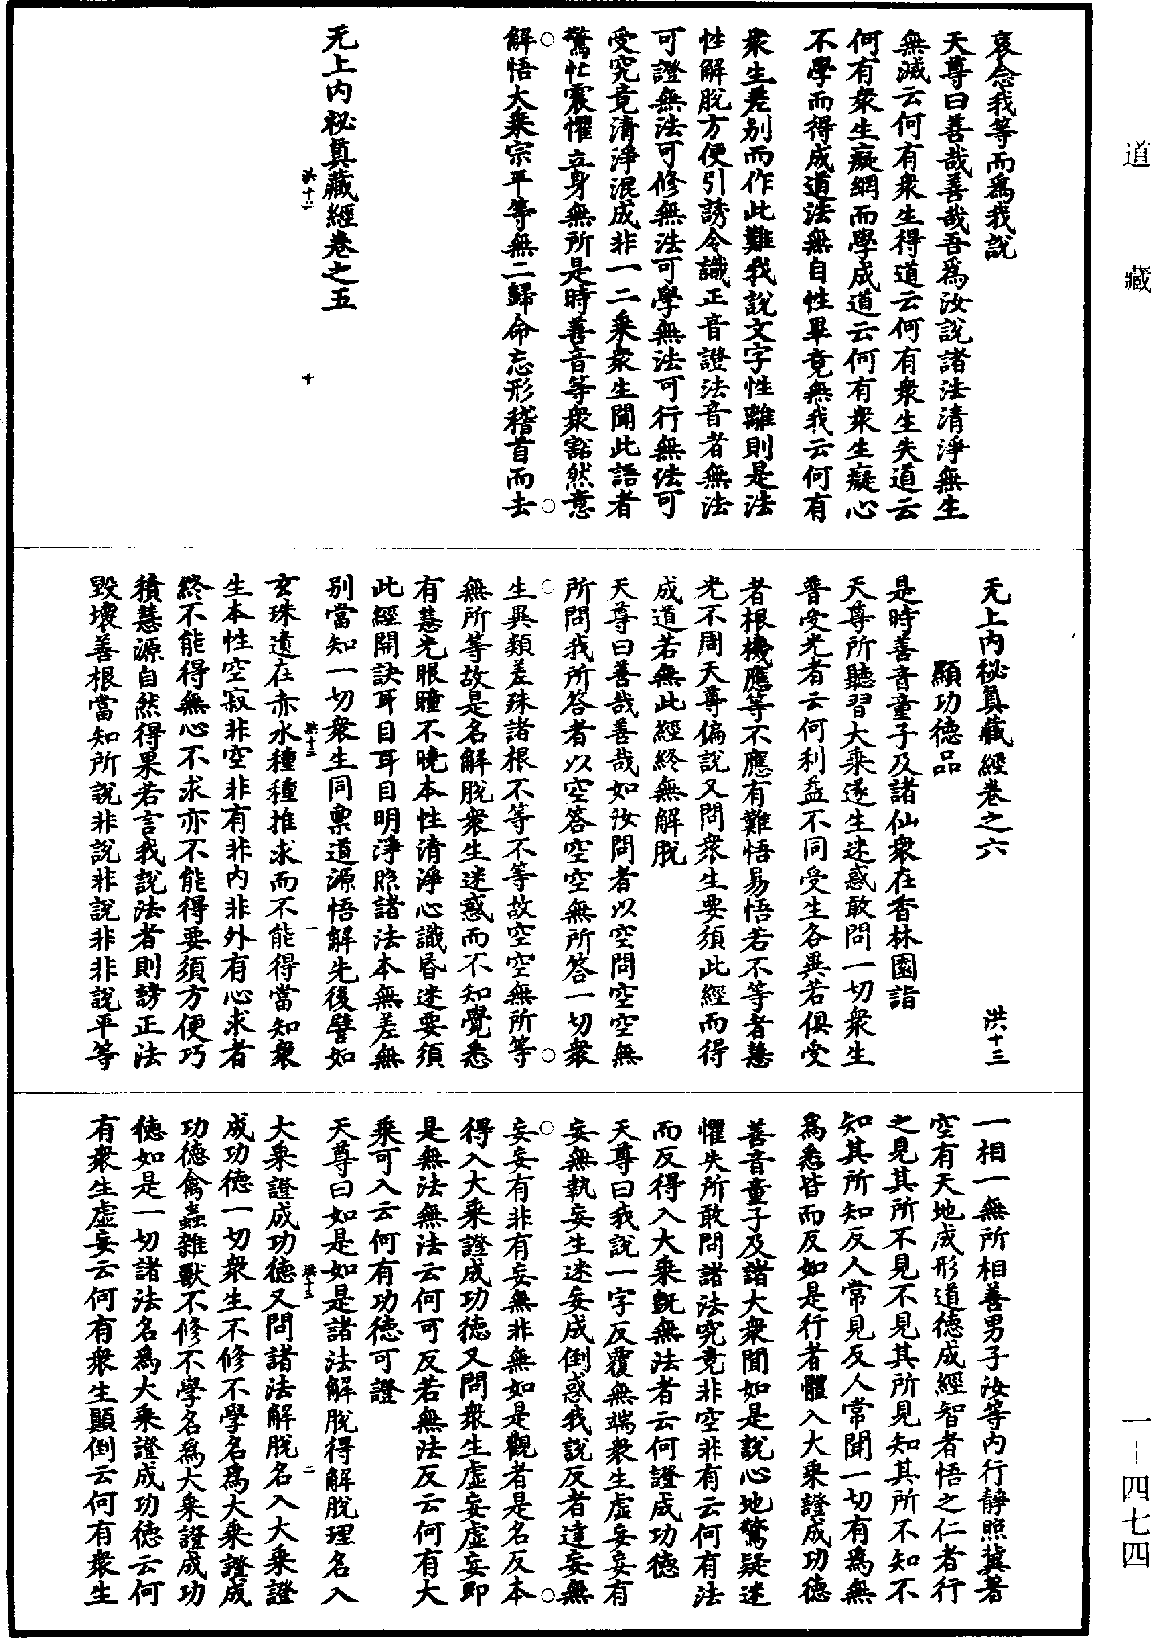 道藏
一—四七四
哀念我等而爲我說
天尊曰善哉善哉吾爲汝說諸法清淨無生
無滅云何有衆生得道云何有衆生失道云
何有衆生癡網而學成道云何有衆生癡心
不學而得成道法無自性畢竟無我云何有
衆生差別而作此難我說文字性離則是法
性解脫方便引誘令識正音證法音者無法
可證無法可修無法可學無法可行無法可
受究竟清淨混成非一二乘衆生聞此語者
驚忙震懼立身無所是時善音等衆豁然意
解悟大乘宗平等無二歸命忘形稽首而去
洪十二 十
无上内秘真藏經卷之五
无上内秘真藏經卷之六 洪十三
顯功德品
是時善音童子及諸仙衆在香林園詣
天尊所聽習大乘遂生迷惑敢問一切衆生
普受光者云何利益不同受生各異若俱受
者根機應等不應有難悟易悟若不等者慧
光不周天尊偏說又問衆生要須此經而得
成道若無此經終無解脫
天尊曰善哉善哉如汝問者以空問空空無
所問我所答者以空答空空無所答一切衆
生異類差殊諸根不等不等故空空無所等
無所等故是名解脫衆生迷惑而不知覺悉
有慧光眼瞳不曉本性清淨心識昏迷要須
此經開訣耳目耳目明淨照諸法本無差無
別當知一切衆生同稟道源悟解先後譬如
洪十三 一
玄珠遺在赤水種種推求而不能得當知衆
生本性空寂非空非有非内非外有心求者
終不能得無心不求亦不能得要須方便巧
積慧源自然得果若言我說法者則謗正法
毀壞善根當知所說非說非說非非說平等
一相一無所相善男子汝等内行靜照冀著
空有天地成形道德成經智者悟之仁者行
之見其所不見不見其所見知其所不知不
知其所知反人常見反人常聞一切有爲無
爲悉皆而反如是行者體入大乘證成功德
善音童子及諸大衆聞如是說心地驚疑迷
懼失所敢問諸法究竟非空非有云何有法
而反得入大乘既無法者云何證成功德
天尊曰我說一字反覆無端衆生虛妄妄有
妄無執妄生迷妄成倒惑我說反者達妄無
妄妄有非有妄無非無如是觀者是名反本
得入大乘證成功德又問衆生虛妄虛妄即
是無法無法云何可反若無法反云何有大
乘可入云何有功德可證
天尊曰如是如是諸法解脫得解脫理名入
洪十三 二
大乘證成功德又問諸法解脫名入大乘證
成功德一切衆生不修不學名爲大乘證成
功德禽蟲雜獸不修不學名爲大乘證成功
德如是一切諸法名爲大乘證成功德云何
有衆生虛妄云何有衆生顛倒云何有衆生